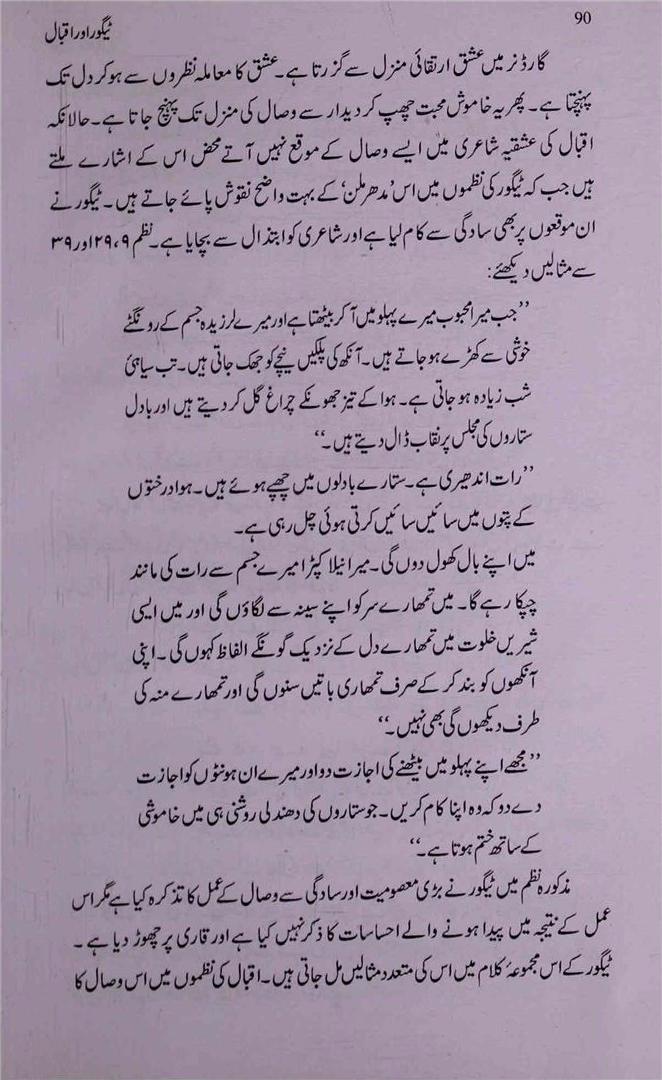 90
ٹیگور اور اقبال
گارڈنر میں عشق ارتقائی منزل سے گزرتا ہے۔ عشق کا معاملہ نظروں سے ہو کر دل تک
پہنچتا ہے۔ پھر یہ خاموش محبت چھپ کر دیدار سے وصال کی منزل تک پہنچ جاتا ہے۔ حالانکہ
اقبال کی عشقیہ شاعری میں ایسے وصال کے موقع نہیں آتے محض اس کے اشارے ملتے
ہیں جب کہ ٹیگور کی نظموں میں اس ’مدھر ملن‘ کے بہت واضح نقوش پائے جاتے ہیں۔ ٹیگور نے
ان موقعوں پر بھی سادگی سے کام لیا ہے اور شاعری کو ابتذال سے بچایا ہے۔ نظم ۹،۲۹ اور ۳۹
سے مثالیں دیکھئے:
’’جب میرا محبوب میرے پہلو میں آ کر بیٹھتا ہے اور میرے لرزیدہ جسم کے رونگٹے
خوشی سے کھڑے ہو جاتے ہیں۔ آنکھ کی پلکیں نیچے کو جھک جاتی ہیں۔ تب سیاہئ
شب زیادہ ہو جاتی ہے۔ ہوا کے تیز جھونکے چراغ گل کر دیتے ہیں اور بادل
ستاروں کی مجلس پر نقاب ڈال دیتے ہیں۔‘‘
’’رات اندھیری ہے۔ ستارے بادلوں میں چھپے ہوئے ہیں۔ ہوا درختوں
کے پتوں میں سائیں سائیں کرتی ہوئی چل رہی ہے۔
میں اپنے بال کھول دوں گی۔ میرا نیلا کپڑا میرے جسم سے رات کی مانند
چپکا رہے گا۔ میں تمھارے سر کو اپنے سینہ سے لگاؤں گی اور میں ایسی
شیریں خلوت میں تمھارے دل کے نزدیک گونگے الفاظ کہوں گی۔ اپنی
آنکھوں کو بند کر کے صرف تمھاری باتیں سنوں گی اور تمھارے منہ کی
طرف دیکھوں گی بھی نہیں۔‘‘
’’مجھے اپنے پہلو میں بیٹھنے کی اجازت دو اور میرے ان ہونٹوں کو اجازت
دے دو کہ وہ اپنا کام کریں۔ جو ستاروں کی دھندلی روشنی ہی میں خاموشی
کے ساتھ ختم ہوتا ہے۔‘‘
مذکورہ نظم میں ٹیگور نے بڑی معصومیت اور سادگی سے وصال کے عمل کا تذکرہ کیا ہے مگر اس
عمل کے نتیجہ میں پیدا ہونے والے احساسات کا ذکر نہیں کیا ہے اور قاری پر چھوڑ دیا ہے۔
ٹیگور کے اس مجموعۂ کلام میں اس کی متعدد مثالیں مل جاتی ہیں۔ اقبال کی نظموں میں اس وصال کا